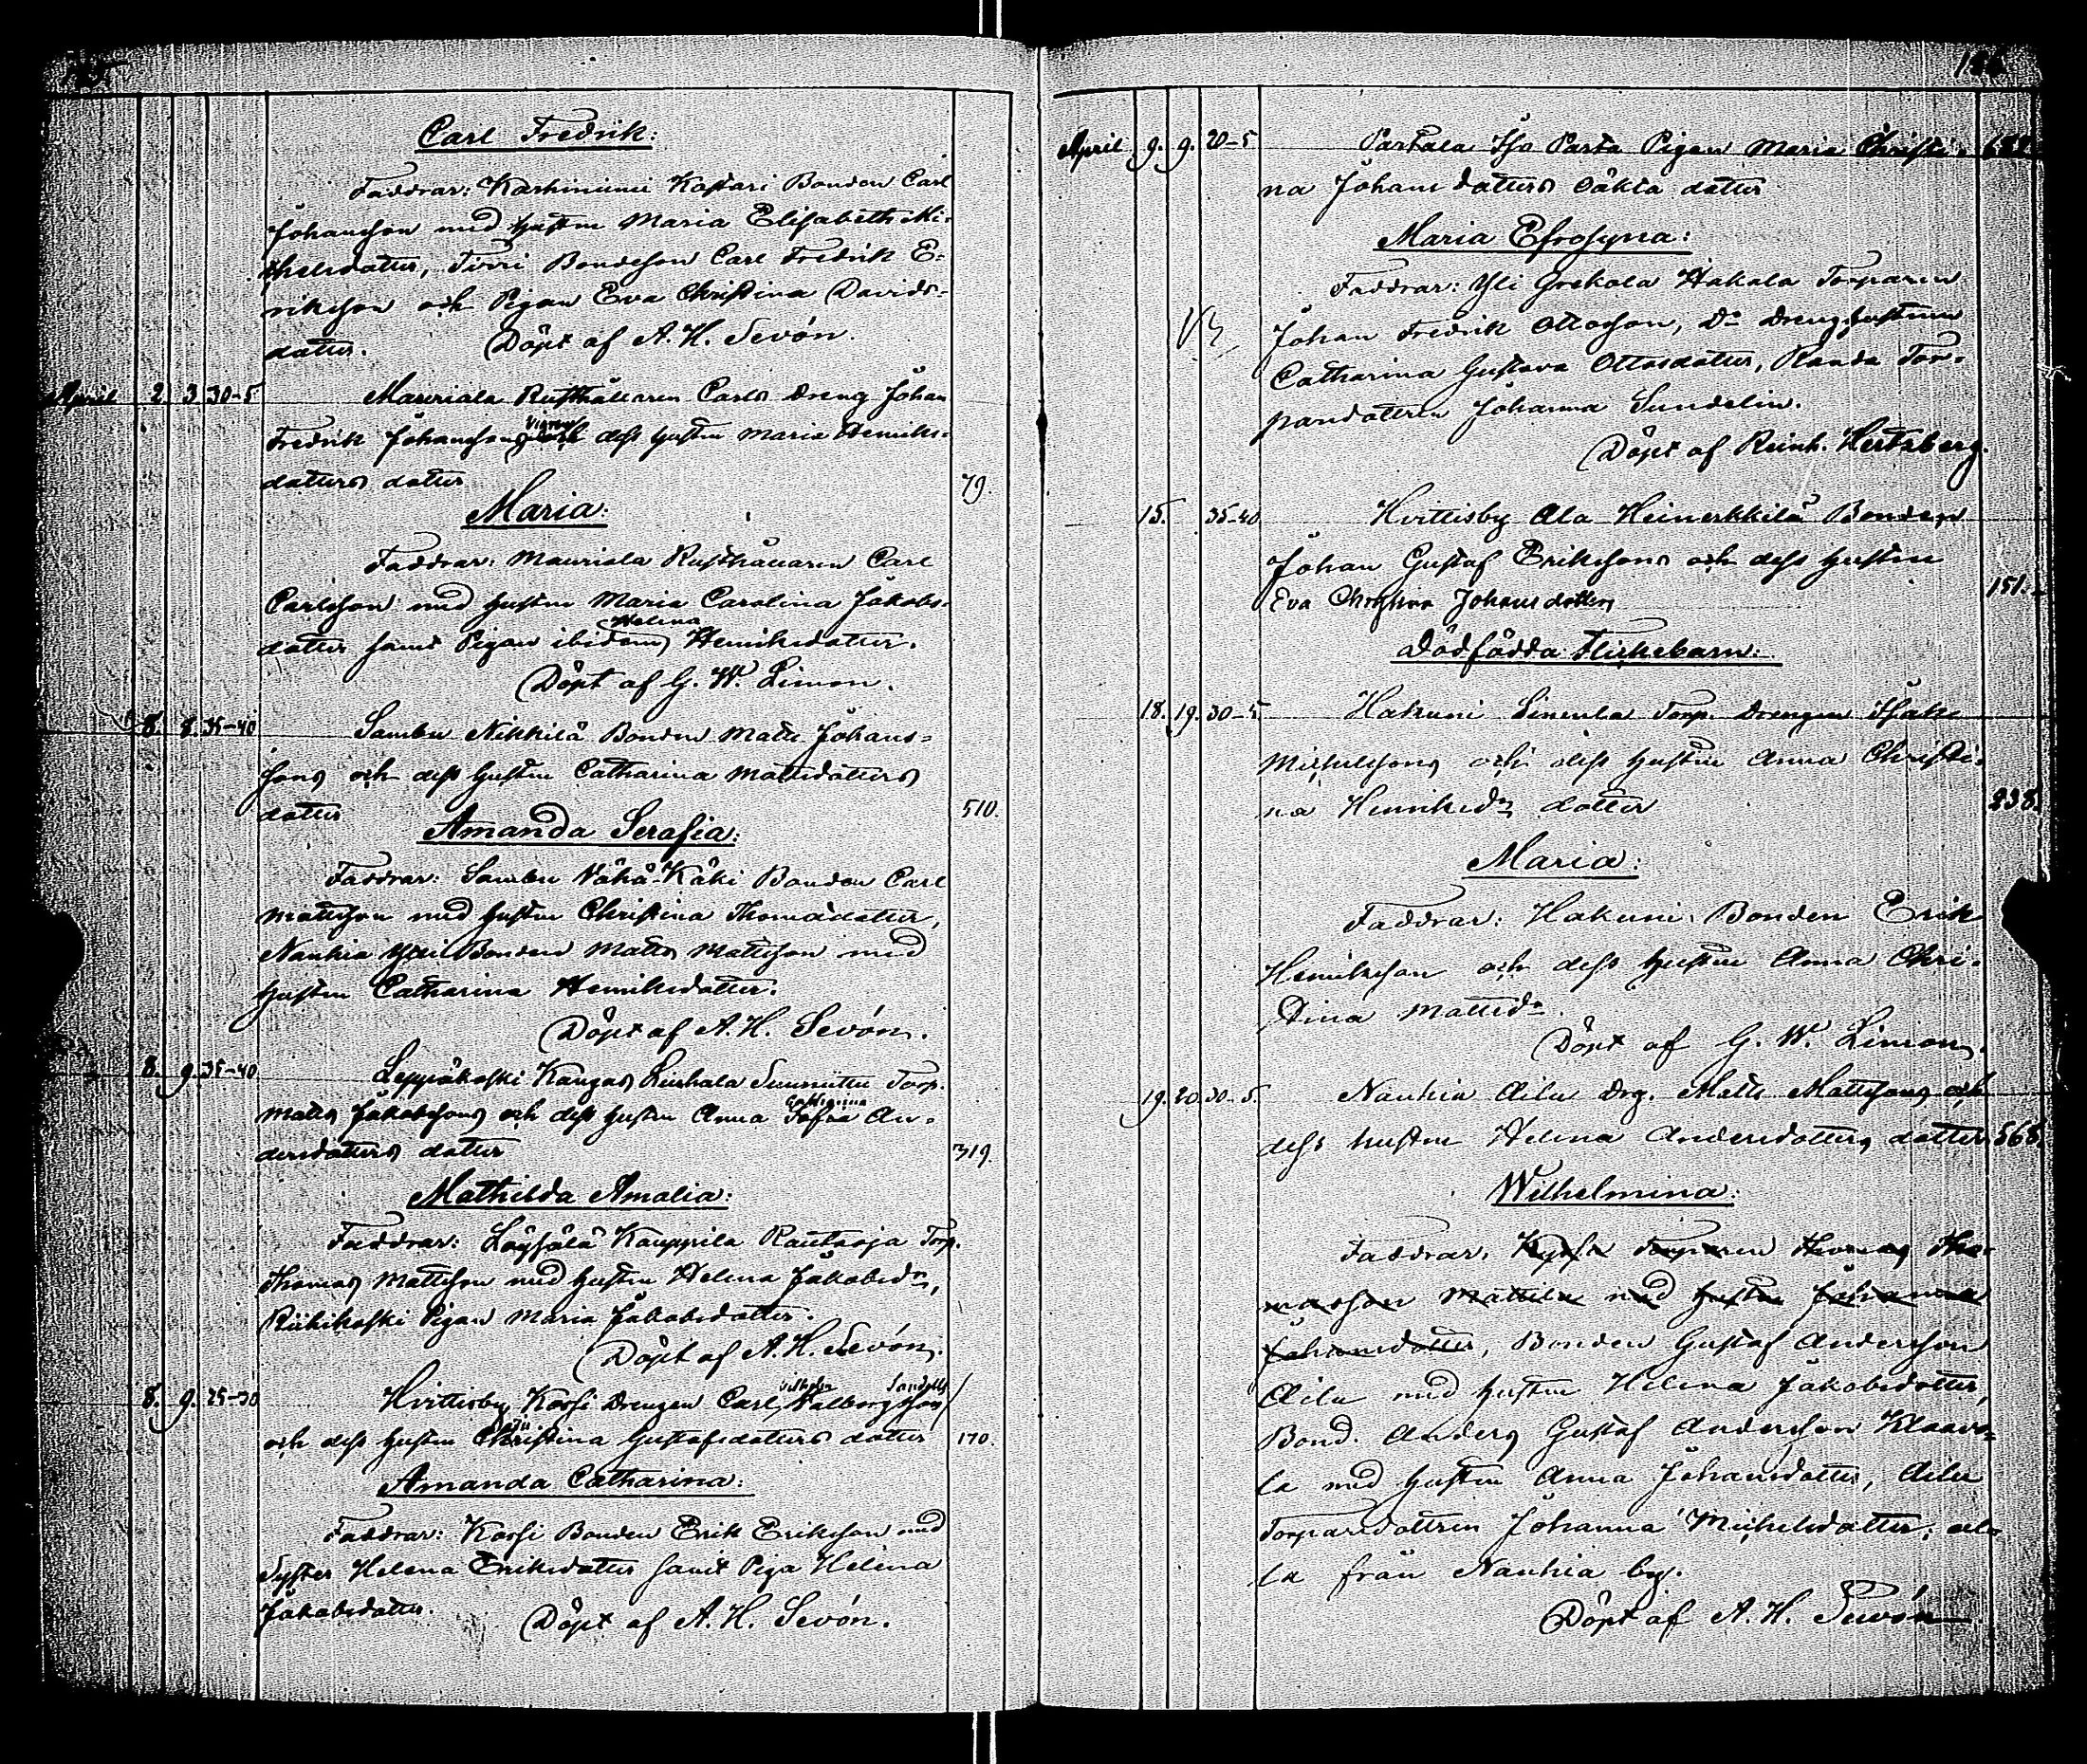 Carl Fredrik:
Faddrar: Karhiniemi Kostari Bonden Carl
Johansson med hustru Maria Elisabeth Mi-
chelsdotter, Tirri Bondeson Carl Fredrik E-
riksson och Pigan Eva Christina Davids-
dotter. Döpt af A. H. Sevón.
April 2. 3. 30-5 Mauriala Rusthållaren Carls dreng Johan
Fredrik Johanssons och dess hustru Maria Henriks-
dotters dotter 79.
Maria:
Faddrar: Mauriala Rusthållaren Carl
Carlsson med hustru Maria Carolina Jakobs-
Helena
dotter samt Pigan ibidem Henriksdotter.
Döpt af G. W. Limon.
8. 8. 35-40 Sambu Nikkilä Bonden Matts Johans-
sons och dess hustru Catharina Mattsdotters
dotter 510.
Amanda Serafia:
Faddrar: Sambu Vähä-Käki Bonden Carl
Mattsson med hustru Christina Thomasdotter,
Nanhia Bonden Matts Mattsson med
hustru Catharina Henriksdotter.
Döpt af A. H. Sevón.
8. 9. 35-40 Leppäkoski Kangas Linhala Torp.
Matts Jakobssons och dess hustru Anna Sofia An-
dersdotters dotter 319.
Mathilda Amalia:
Faddrar: Löysälä Kauppila Rautaoja Torp.
Thomas Mattsson med hustru Helena Jakobsdr,
Riihikoski Pigan Maria Jakobsdotter.
Döpt af A. H. Sevón.
8. 9. 25-30 Hvittisby Korsi Drengen Carl Walborgsson
och dess hustru Christina Gustafsdotters dotter 170.
Amanda Catharina:
Faddrar: Korsi Bonden Erik Eriksson med
Syster Helena Eriksdotter samt Piga Helena
Jakobsdotter. Döpt af A. H. Sevón.
April 9. 9. 20-5 Partala Iso Parta Pigan Maria Christi-
na Johans dotters oäkta dotter
Maria Efrosyna:
Faddrar: Yli Grekola Hakala Torparen
Johan Fredrik Ottosson, Do Dreng hustrun
Catharina Gustava Ottosdotter, Randa Tor-
paredottren Johanna Sundelin.
Döpt af Reinh. Hertzberg.
15. 35-40 Hvittisby Ala Heinerkkilä Bonden
Johan Gustaf Erikssons och dess hustru
Eva Christina Johansdotters 151.
Dödfödda Flickebarn:
18. 19. 30-5 Hakuni Torp. Drengen Isaks
Michelssons och dess hustru Anna Christi-
na Henriksdrs dotter 238.
Maria:
Faddrar: Hakuni Bonden Erik
Henriksson och dess hustru Anna Chri-
stina Mattsdr.
Döpt af G. W. Limon.
19. 20. 30-5. Nanhia Eilu Drg. Matts Mattssons och
dess hustru Helena Andersdotters dotter 568
Wilhelmina:
Faddrar: Torparen Thomas Tho-
masson Mattila med hustru Johanna
Johansdotter, Bonden Gustaf Andersson
Eilu med hustru Helena Jakobsdotter,
Bond. Anders Gustaf Andersson Klaavo-
la med hustru Anna Johansdotter, Eilu
Torparedottren Johanna Michelsdotter, al-
la från Nanhia by.
Döpt af A. H. Sevón